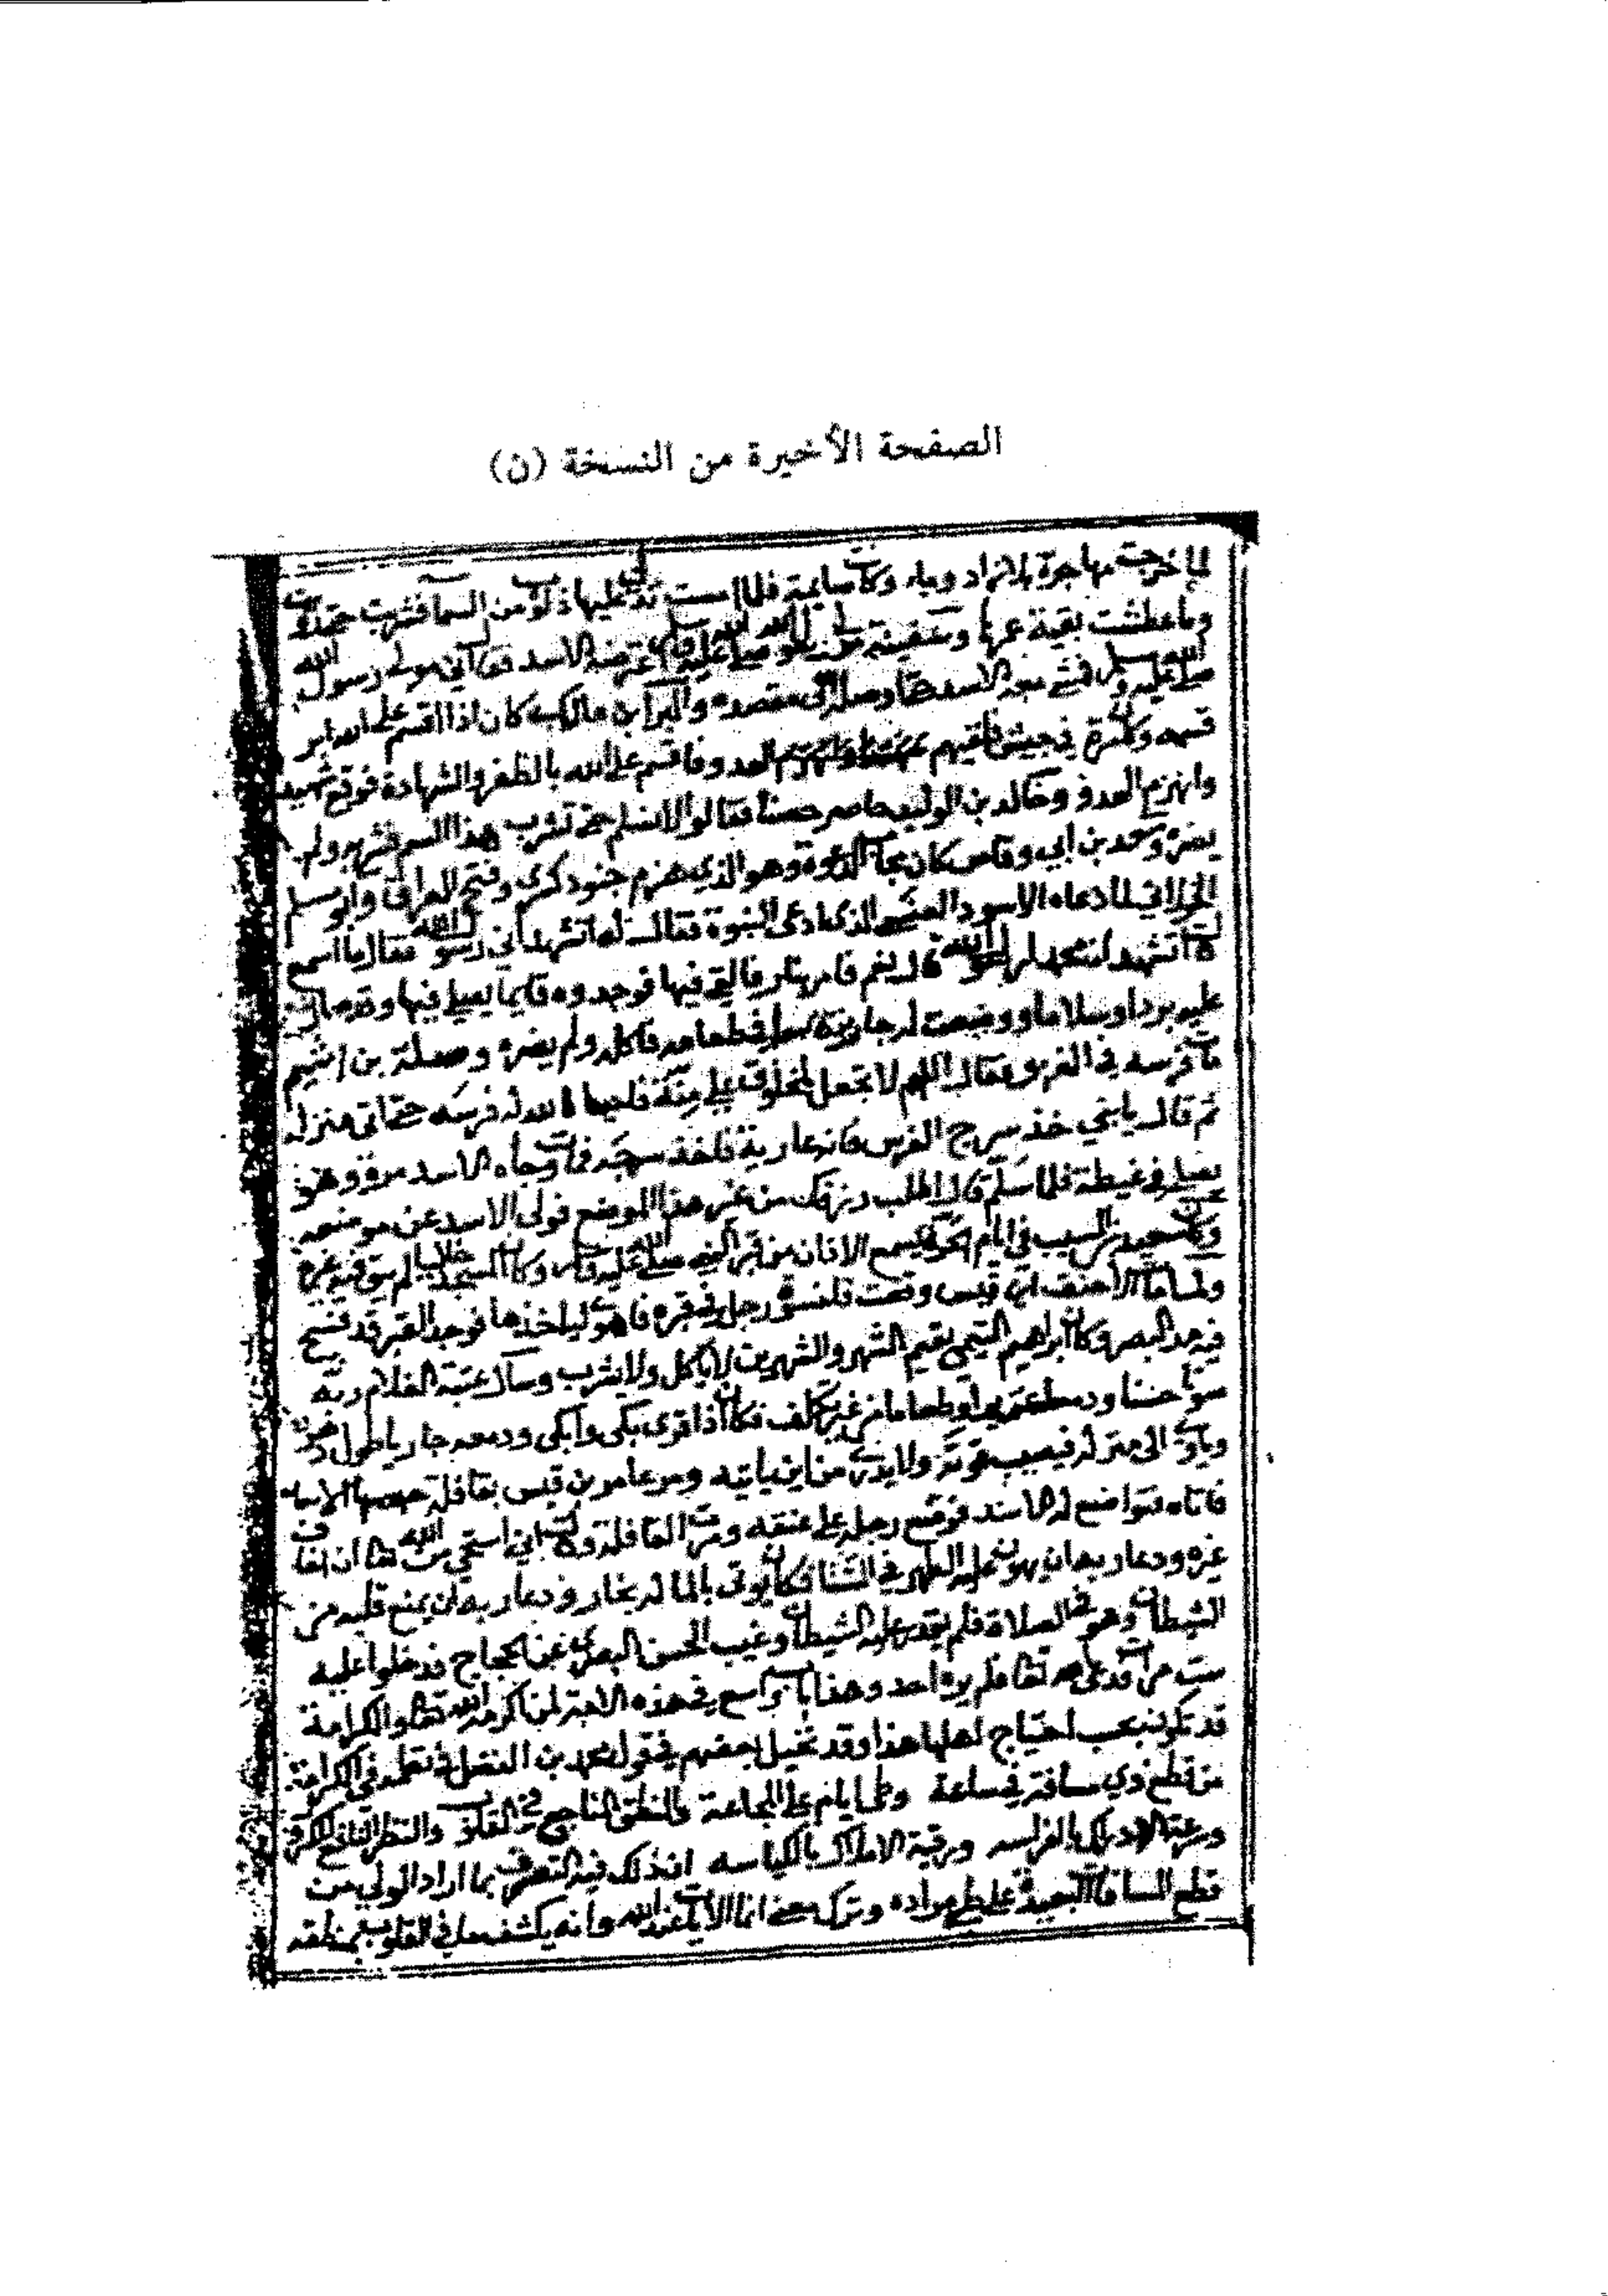 الصفحة الأخيرة من النسخة (ن)
لما خرجت مهاجرة بلا زاد وماء وكانت صايمة فلما امست عليها دلو من السما فشربت حتى
وما عطشت بقية عمرها وسفينة مولى رسول الله صلى الله عليه وسلم اعترضه الاسد فقال اني مولى رسول الله
صلى الله عليه وسلم فمشى معه الاسد حتى اوصله الى مقصده والبرا بن مالك كان اذا اقسم على الله ابر
قسمه وكان مرة في جيش فلقيهم العدو فاقسم على الله بالظفر والشهادة فوقع شهيد
وانهزم العدو وخالد بن الوليد حاصر حصنا فقالوا لا نسلم حتى تشرب هذا السم فشربه ولم
يضره وسعد بن ابي وقاص كان مجاب الدعوة وهو الذي هزم جنود كسرى وفتح العراق وابو مسلم
الخولاني لما دعاه الاسود العنسي الذي ادعى النبوة فقال له اتشهد اني رسول الله فقال ما اسمع
قال اتشهد ان محمدا رسول الله قال نعم فامر بنار فالقي فيها فوجدوه قايما يصلي فيها وقد صارت
عليه بردا وسلاما ووضعت له جاريته سما في طعامه فاكله ولم يضره وصلة بن اشيم
مات فرسه في الغزو فقال اللهم لا تجعل لمخلوق علي منة فاحيا الله له فرسه حتى اتى منزله
ثم قال يا بني خذ سرج الفرس فانه عارية فاخذ سرجه فمات وجاه الاسد مرة وهو
يصلي في غيطة فلما سلم قال اطلب رزقك من غير هذا الموضع فولى الاسد عن موضعه
وكان سعيد بن المسيب في ايام الحرة يسمع الاذان من قبر النبي صلى الله عليه وسلم وكان المسجد خاليا لم يبق فيه غيره
ولما مات الاحنف ابن قيس وقعت قلنسوة رجل في قبره فاهوى لياخذها فوجد القبر قد فسح
فيه مد البصر وكان ابراهيم التيمي يقيم الشهر والشهرين لا ياكل ولا يشرب وسال عتبة الغلام ربه
صوتا حسنا ودمعا غزيرا وطعاما من غير تكلف فكان اذا قرى بكى وابكى ودمعه جاريا طول دهره
وياوى الى منزله فيصيب قوته ولا يدرى من اين ياتيه ومر عامر بن قيس بقافلة حبسها الاسد
فاتاه فتواضع له الاسد فوضع رجله على عنقه ومرت القافلة وقال اني استحي من الله تعالى ان اخاف
غيره ودعا ربه ان يهون عليه الطهر في الشتا فكان يوتى بالما له بخار ودعا ربه ان يمنع قلبه من
الشيطان وهو في الصلاة فلم يقدر عليه الشيطان وغيب الحسن البصري عن الحجاج فدخلوا عليه
ست مرات فدعى الله تعالى فلم يره احد وهذا باب واسع في هذه الامة لمن اكرمه الله تعالى والكرامة
قد تكون بحسب احتياج اهلها هذا وقد تخيل بعضهم في قول محمد بن الفضل في نظمه في الكرامة
من قطع ذي مسافة في ساعة وطى ايام على المجاعة والنطق الناجي في القلوب والنظر النافع للكروب
وسرعة الادراك بالفراسه ورقية الاملاك بالكياسه ان ذلك فيه التصرف بما اراد الولي من
قطع المسافات البعيدة على طبع مراده وترك معنى انما الايات عند الله وانه يكشف ما في القلوب بمنطقه